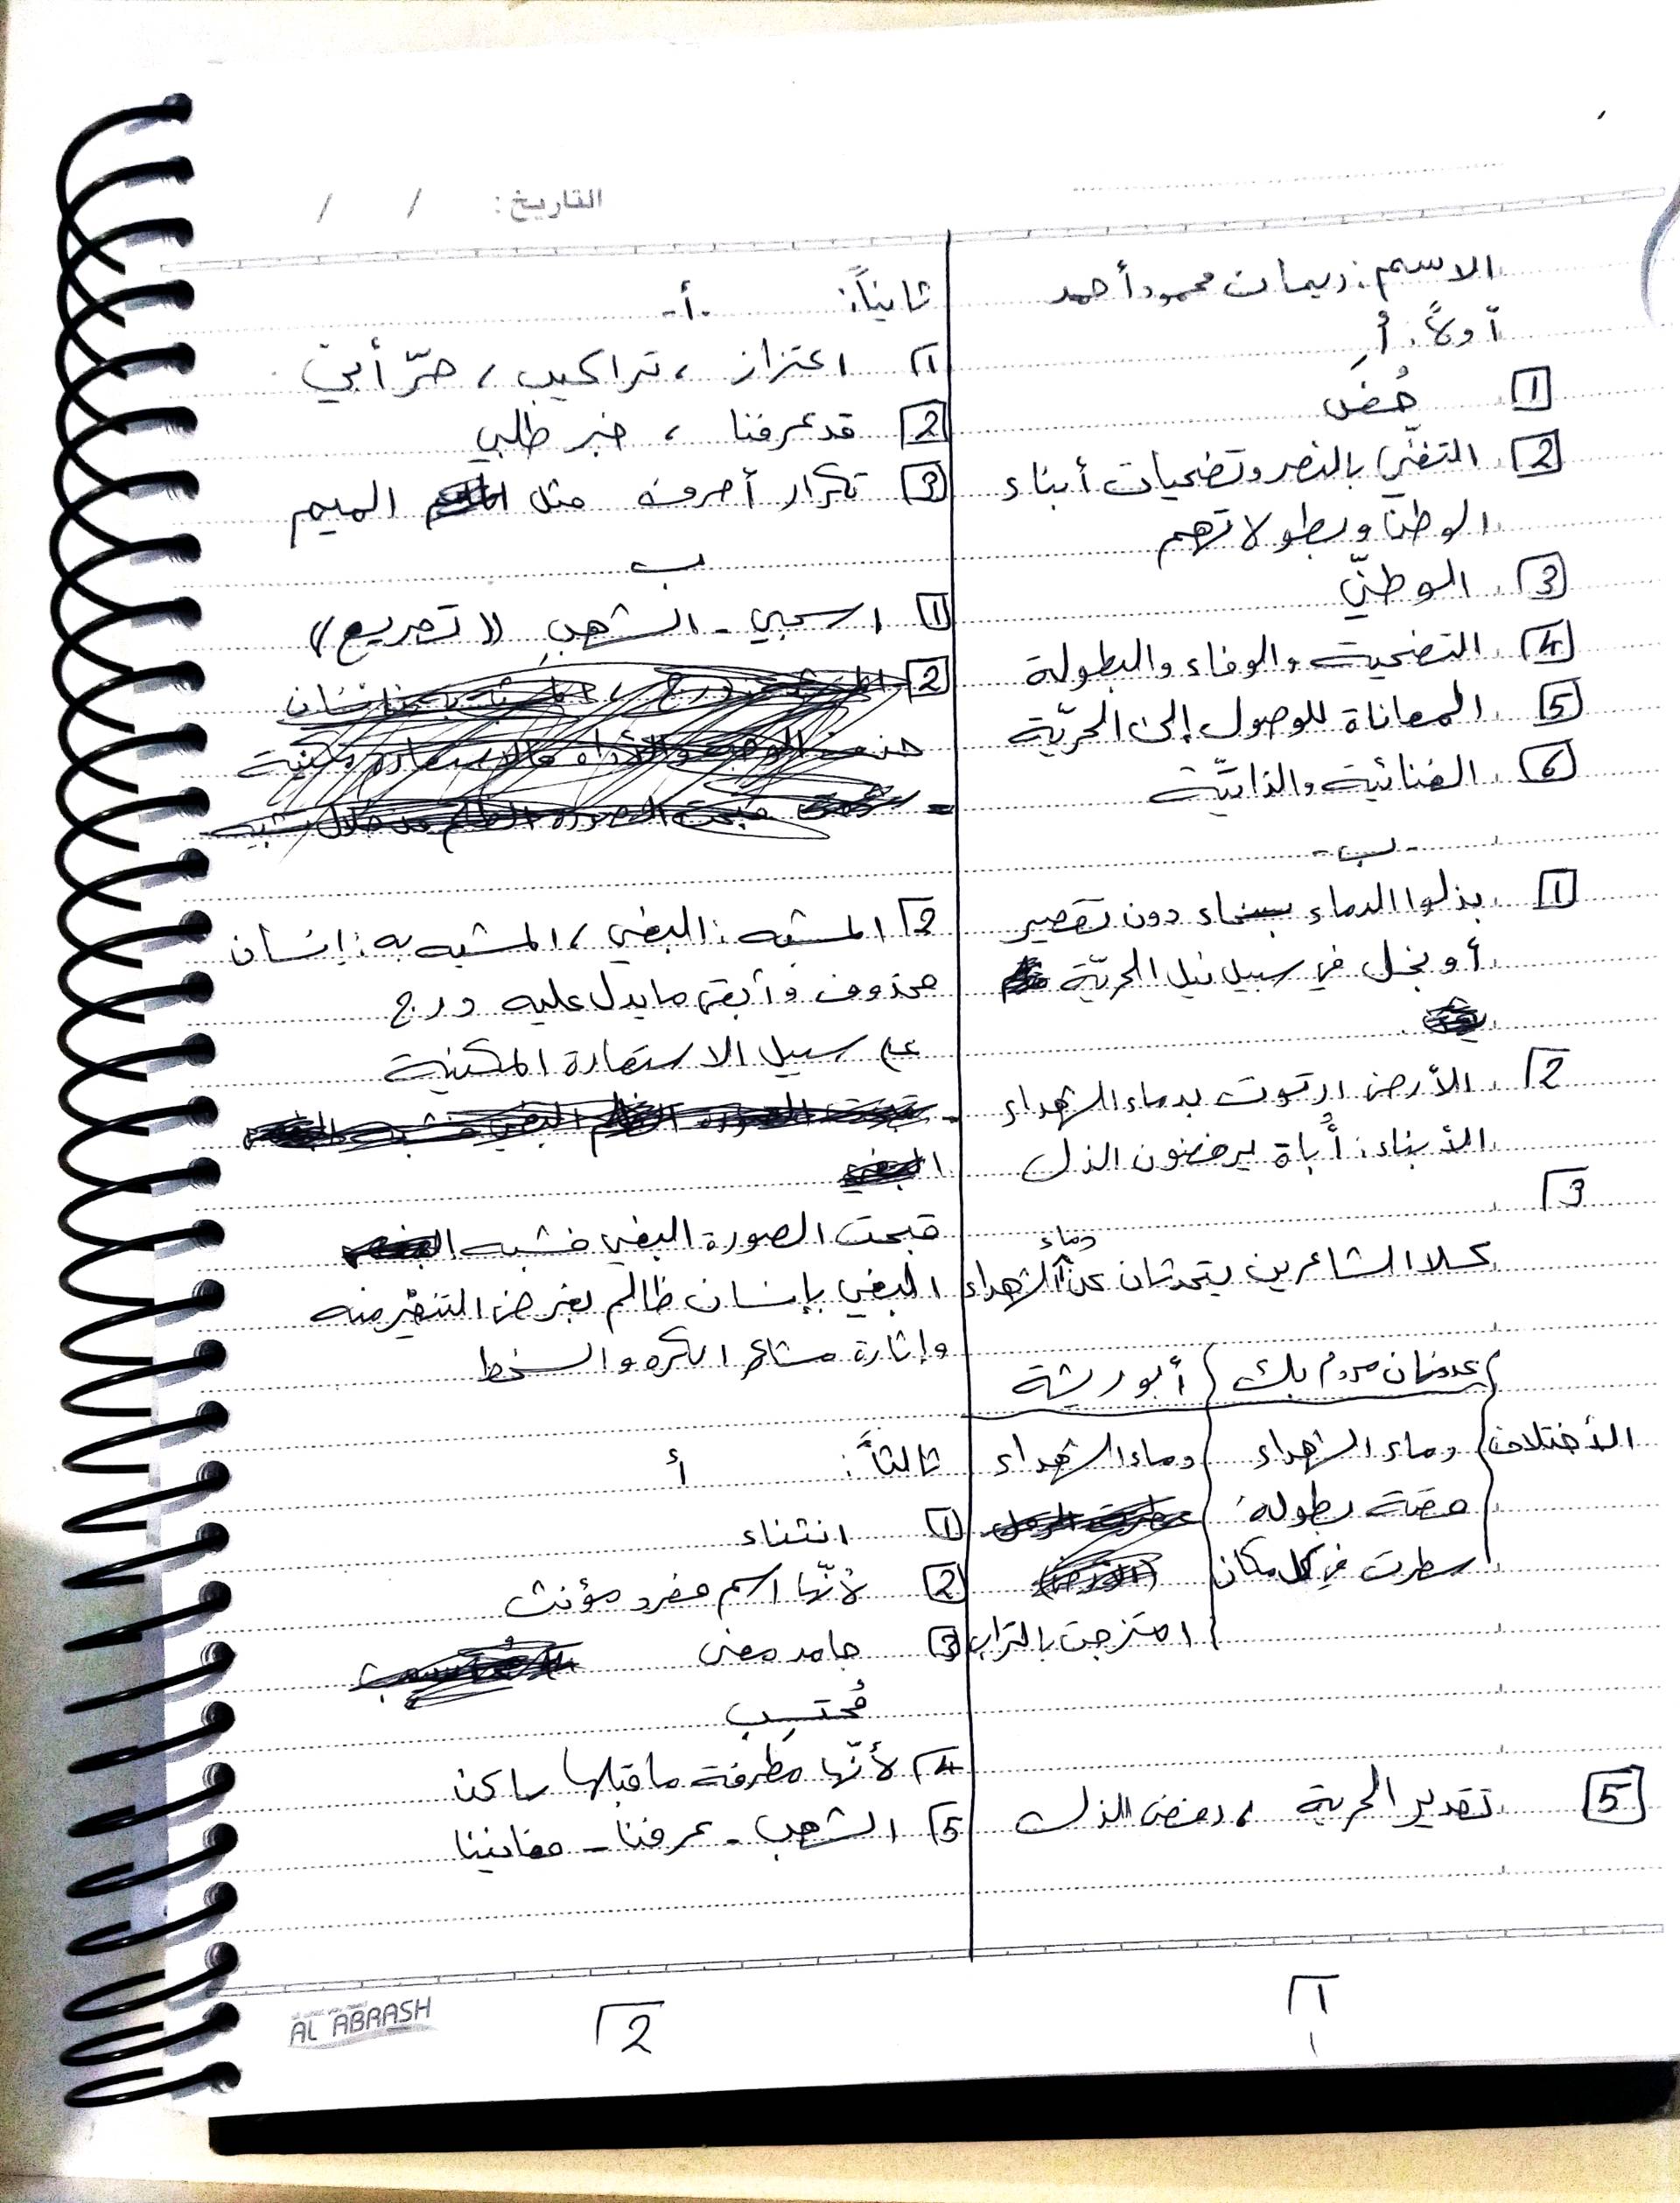 التاريخ: / /
الاسم: ريمان محمود أحمد
أولاً: أ
1 خُفض
2 التغنّي بالنصر وتضحيات أبناء
الوطن وبطولاتهم
3 الوطنيّ
4 التضحية والوفاء والبطولة
5 المعاناة للوصول إلى الحريّة
6 الغنائية والذاتيّة
- ب -
1 بذلوا الدماء بسخاء دون تقصير
أو بخل في سبيل نيل الحريّة
2 الأرض ارتوت بدماء الشهداء
الأبناء: أُباة يرفضون الذل
3
كلا الشاعرين يتحدثان عن دماء الشهداء
عدنان مردم بك أبو ريشة
الأختلاف دماء الشهداء دماء الشهداء
قصة بطولة
سطرت في كل مكان
امتزجت بالتراب
5 تقدير الحرية، رفض الذل
1
ثانياً: - أ -
1 اعتزاز، تراكيب، حرّ أبيّ
2 قد عرفنا، خبر طلبي
3 تكرار أحرف مثل الميم
ب
1 اسحبي - الشهبِ ((تصريع))
2
2 المشبه: البغي، المشبه به: إنسان
محذوف وأبقى ما يدل عليه درج
على سبيل الاستعارة المكنية
قبحت الصورة البغي فشبه
البغي بإنسان ظالم بغرض التنفير منه
وإثارة مشاعر الكره والسخط
ثالثاً: أ
1 انتثناء
2 لأنّها اسم مفرد مؤنث
3 جامد معنى
مُحتسِب
4 لأنّها متطرفة ما قبلها ساكن
5 الشهب - عرفنا - مغانينا
2
AL ABRASH